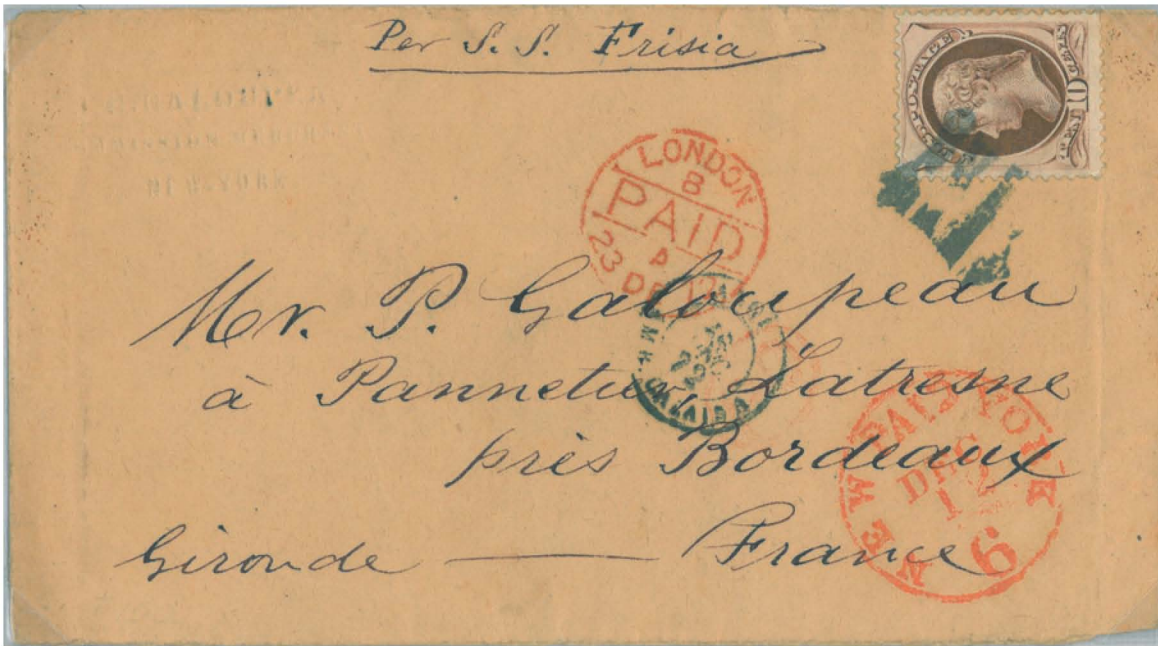 Per S.S. Frisia
NEW YORK
LONDON
8
PAID
23 DE
Mr. P. Galoupeau
à Pannetier, Latresne
près Bordeaux
Gironde — France
NEW PAID YORK
DEC
12
6